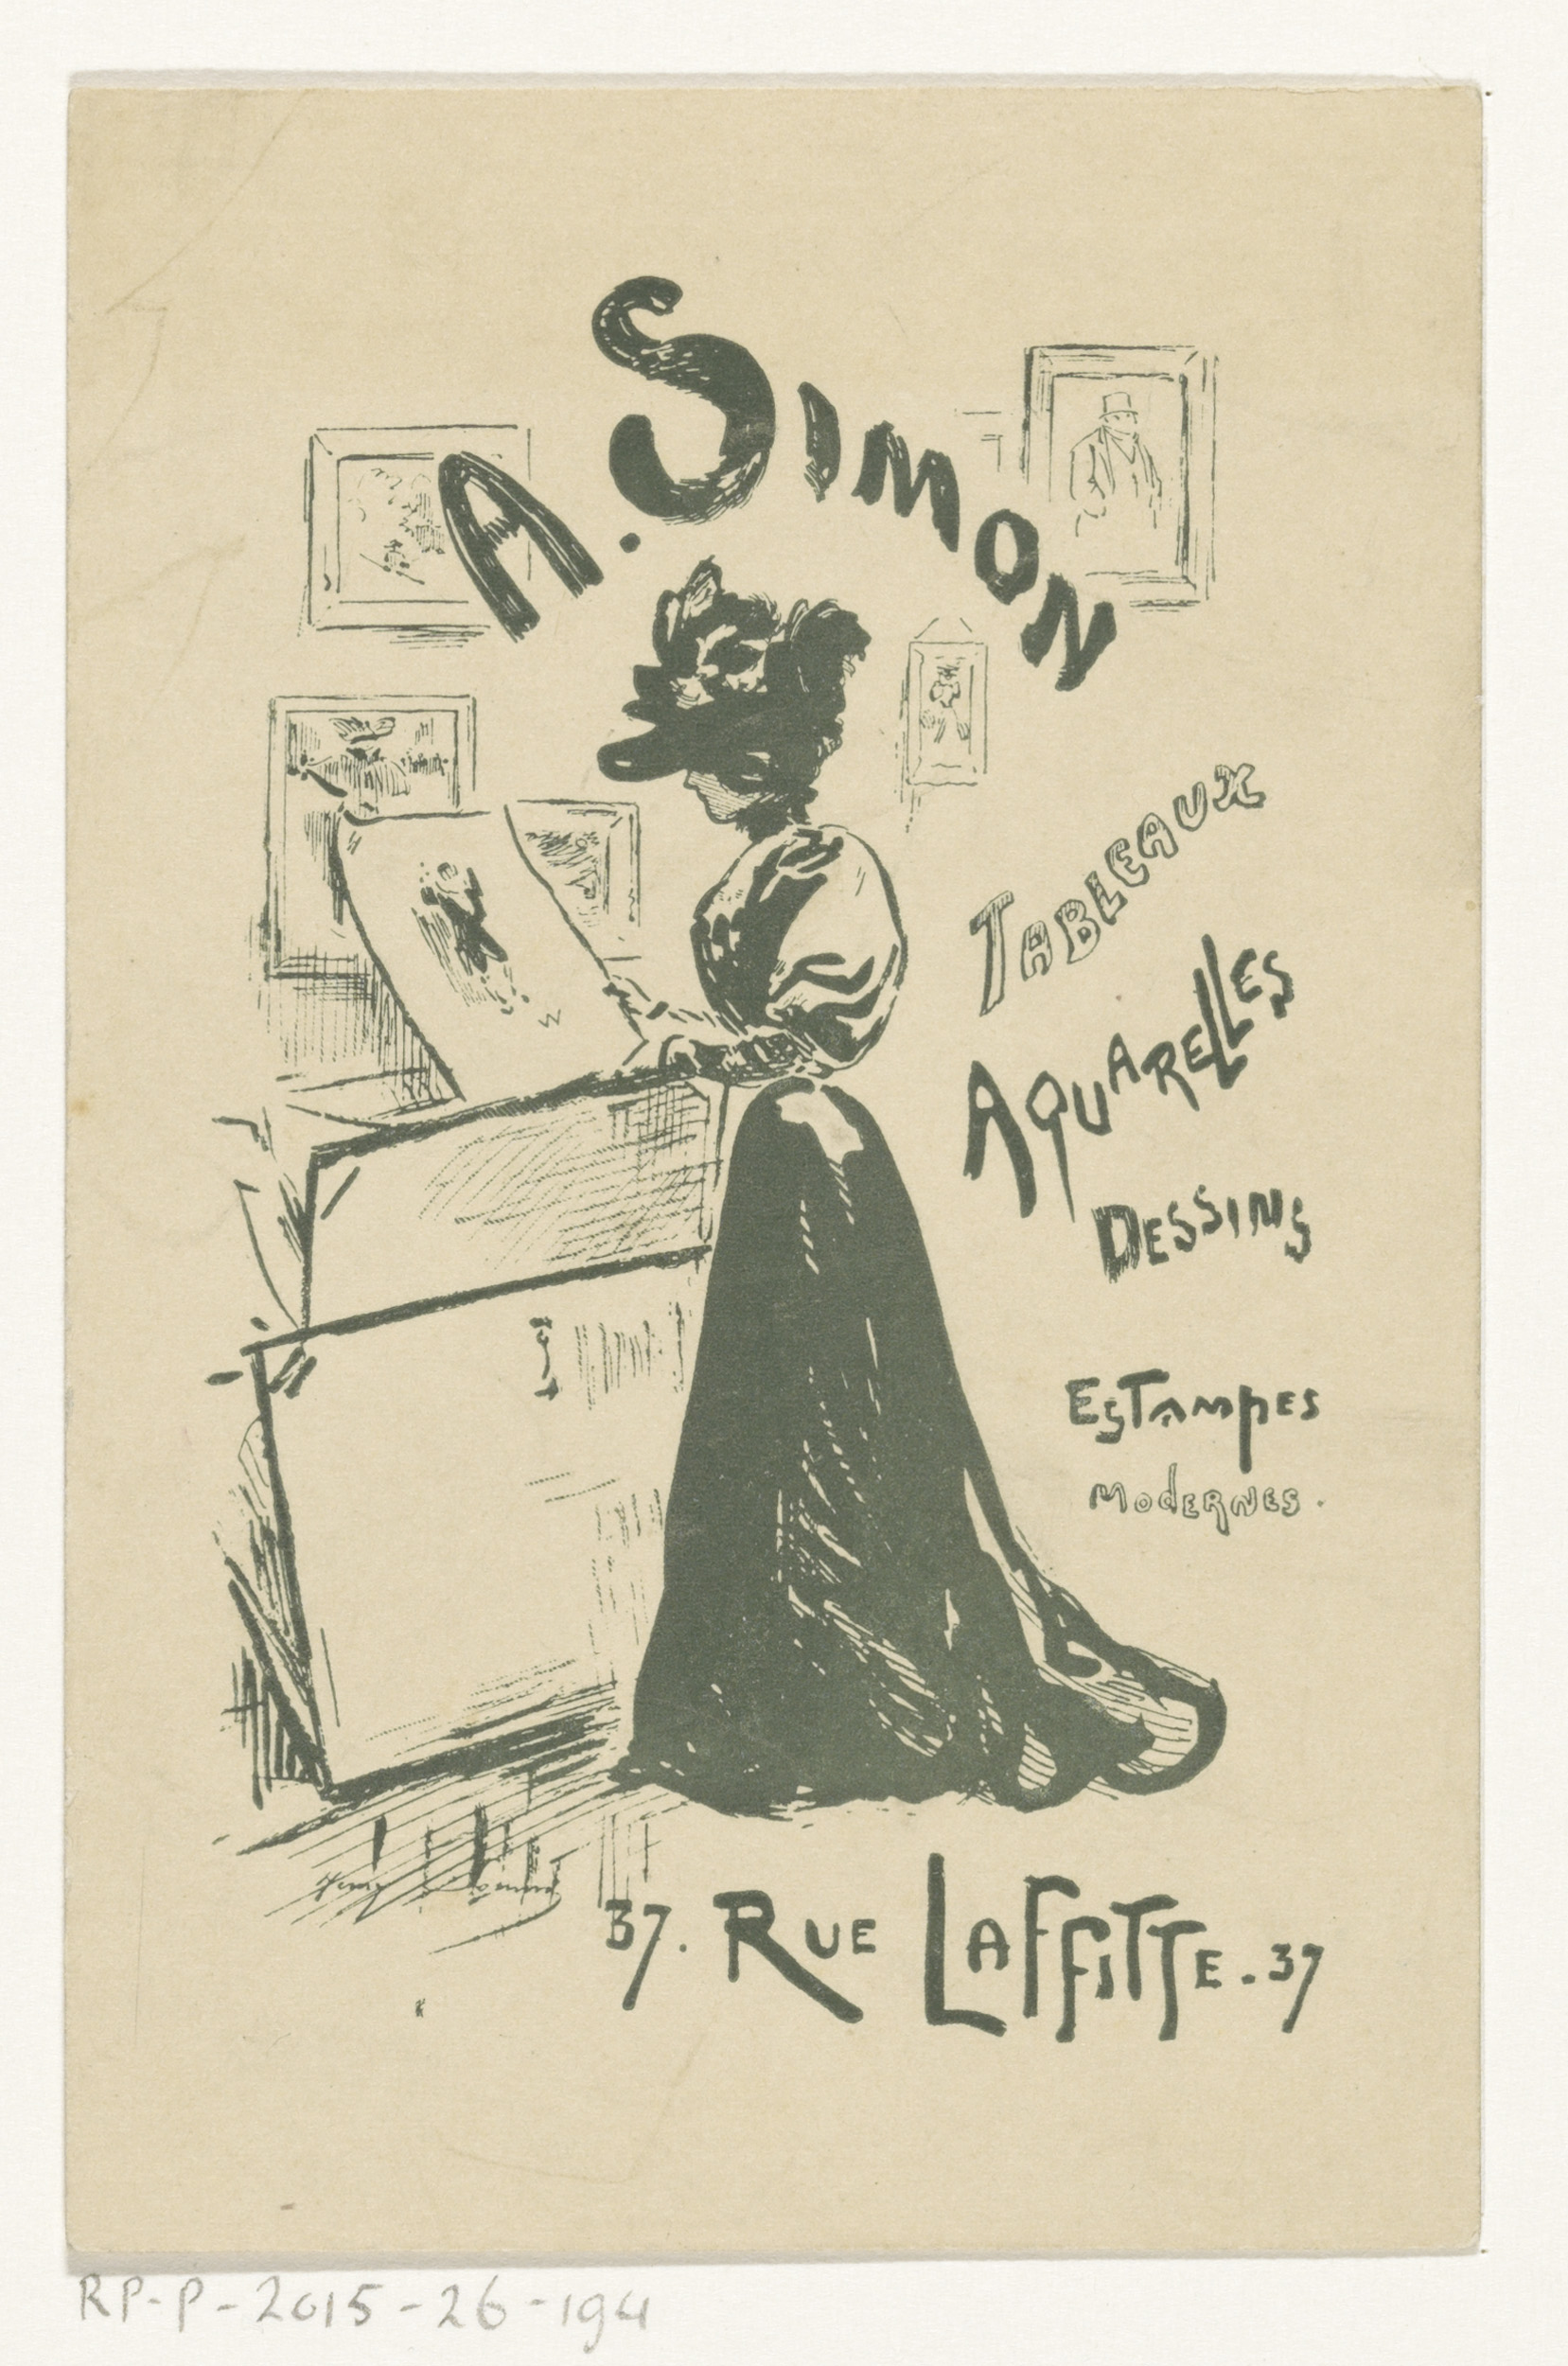 A. SIMON
TABLEAUX
AQUARELLES
DESSINS
ESTAMPES
MODERNES.
37. RUE LAFFITTE. 37
RP-P-2015-26-194